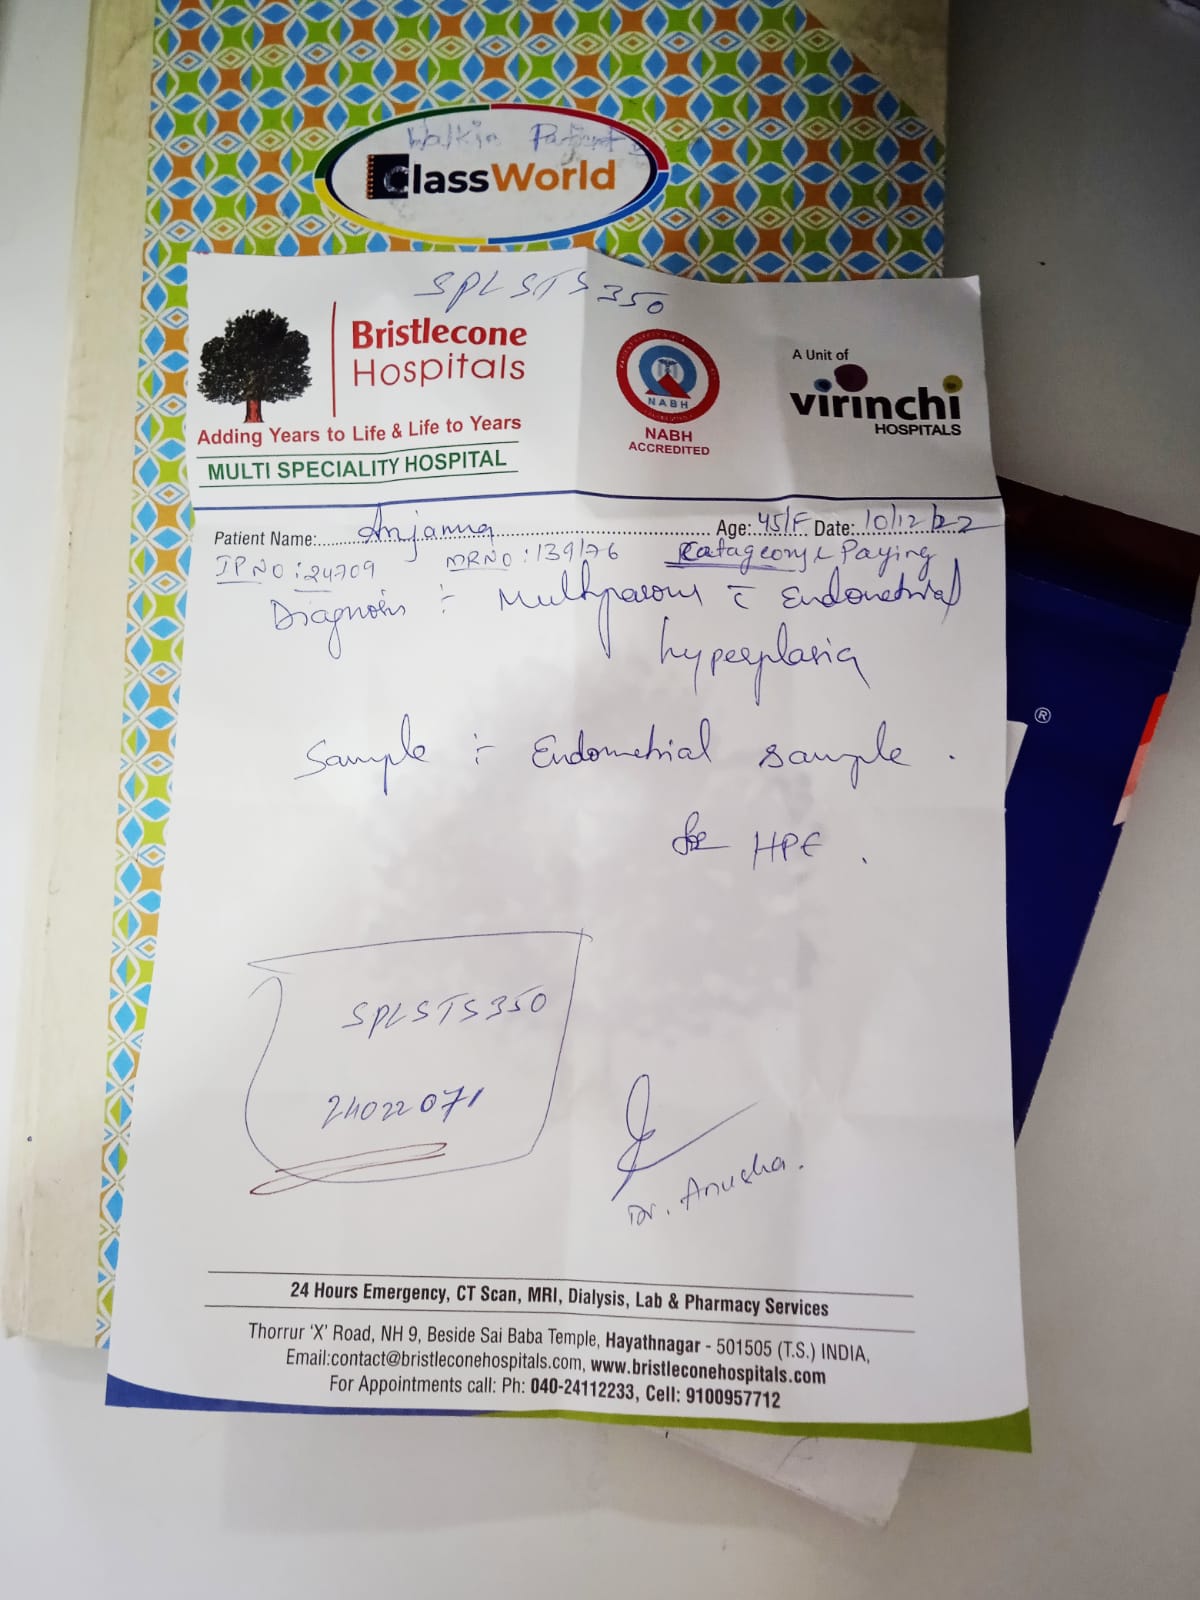 Walkin Patient
ClassWorld
SPLSTS350
Bristlecone
Hospitals
Adding Years to Life & Life to Years
MULTI SPECIALITY HOSPITAL
NABH
NABH
ACCREDITED
A Unit of
virinchi
HOSPITALS
Patient Name: Anjamma Age: 45/F Date: 10/12/22
IPNO: 24709 MRNO: 139176 Catageory: Paying
Diagnosis :- Multiparous c̄ Endometrial
hyperplasia
Sample :- Endometrial sample.
for HPE.
SPLSTS350
24022071
Dr. Anusha.
24 Hours Emergency, CT Scan, MRI, Dialysis, Lab & Pharmacy Services
Thorrur 'X' Road, NH 9, Beside Sai Baba Temple, Hayathnagar - 501505 (T.S.) INDIA,
Email:contact@bristleconehospitals.com, www.bristleconehospitals.com
For Appointments call: Ph: 040-24112233, Cell: 9100957712
®